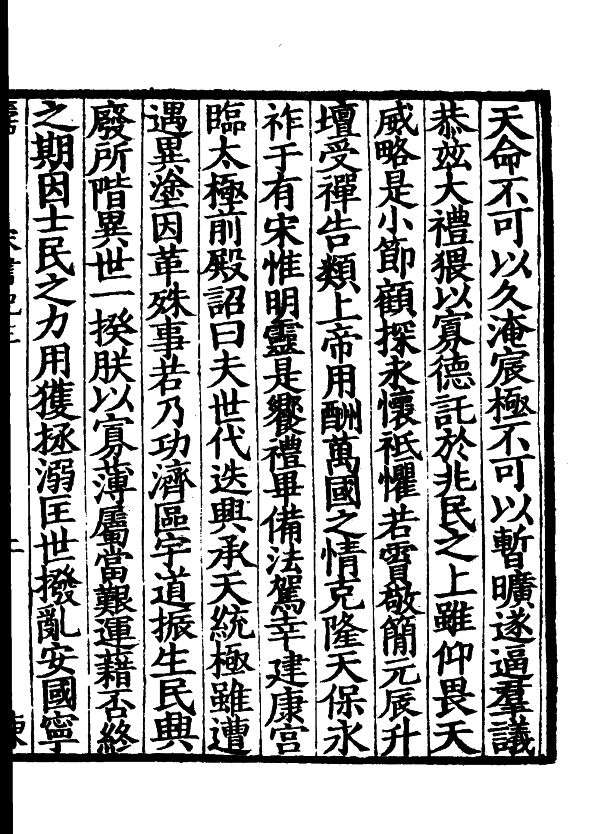 天命不可以久淹宸極不可以暫曠遂逼羣議
恭茲大禮猥以寡德託於兆民之上雖仰畏天
威略是小節顧探永懷祗懼若霣敬簡元辰升
壇受禪告類上帝用酬萬國之情克隆天保永
祚于有宋惟明靈是饗禮畢備法駕幸建康宮
臨太極前殿詔曰夫世代迭興承天統極雖遭
遇異塗因革殊事若乃功濟區宇道振生民興
廢所階異世一揆朕以寡薄屬當艱運藉否終
之期因士民之力用獲拯溺匡世撥亂安國寧